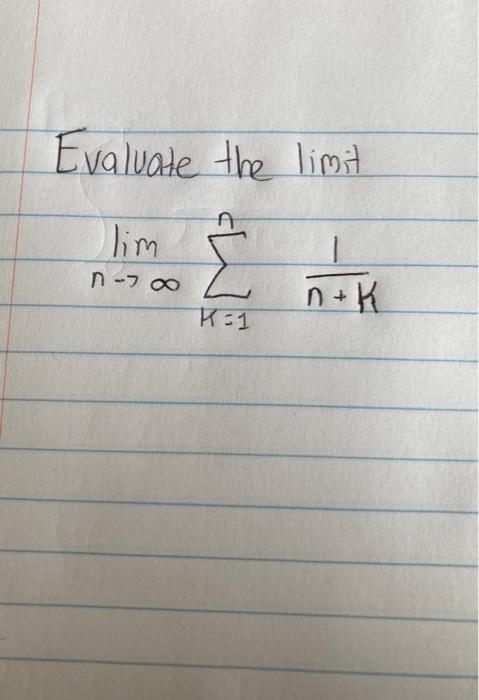 Evaluate the limit
lim n→∞ n Σ K=1 1/(n+K)